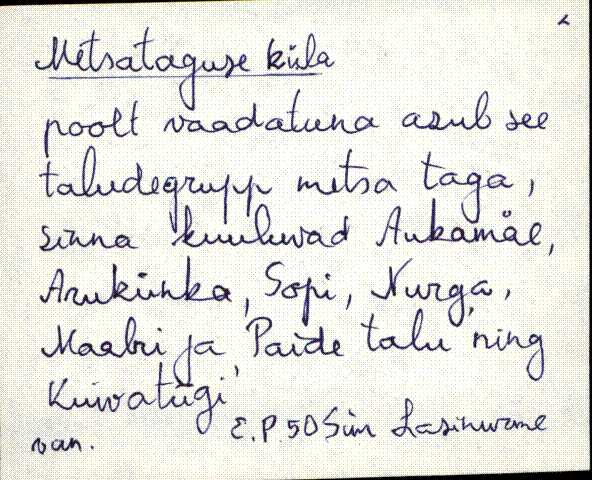 Metsataguse küla
poolt vaadatuna asub see
taludegrupp metsa taga,
sinna kuuluvad Aukamäe,
Arukünka, Sopi, Nurga,
Maabri ja Paide talu ning
Kuivatiigi
E.P. 50 Siim Lasinurme
van.